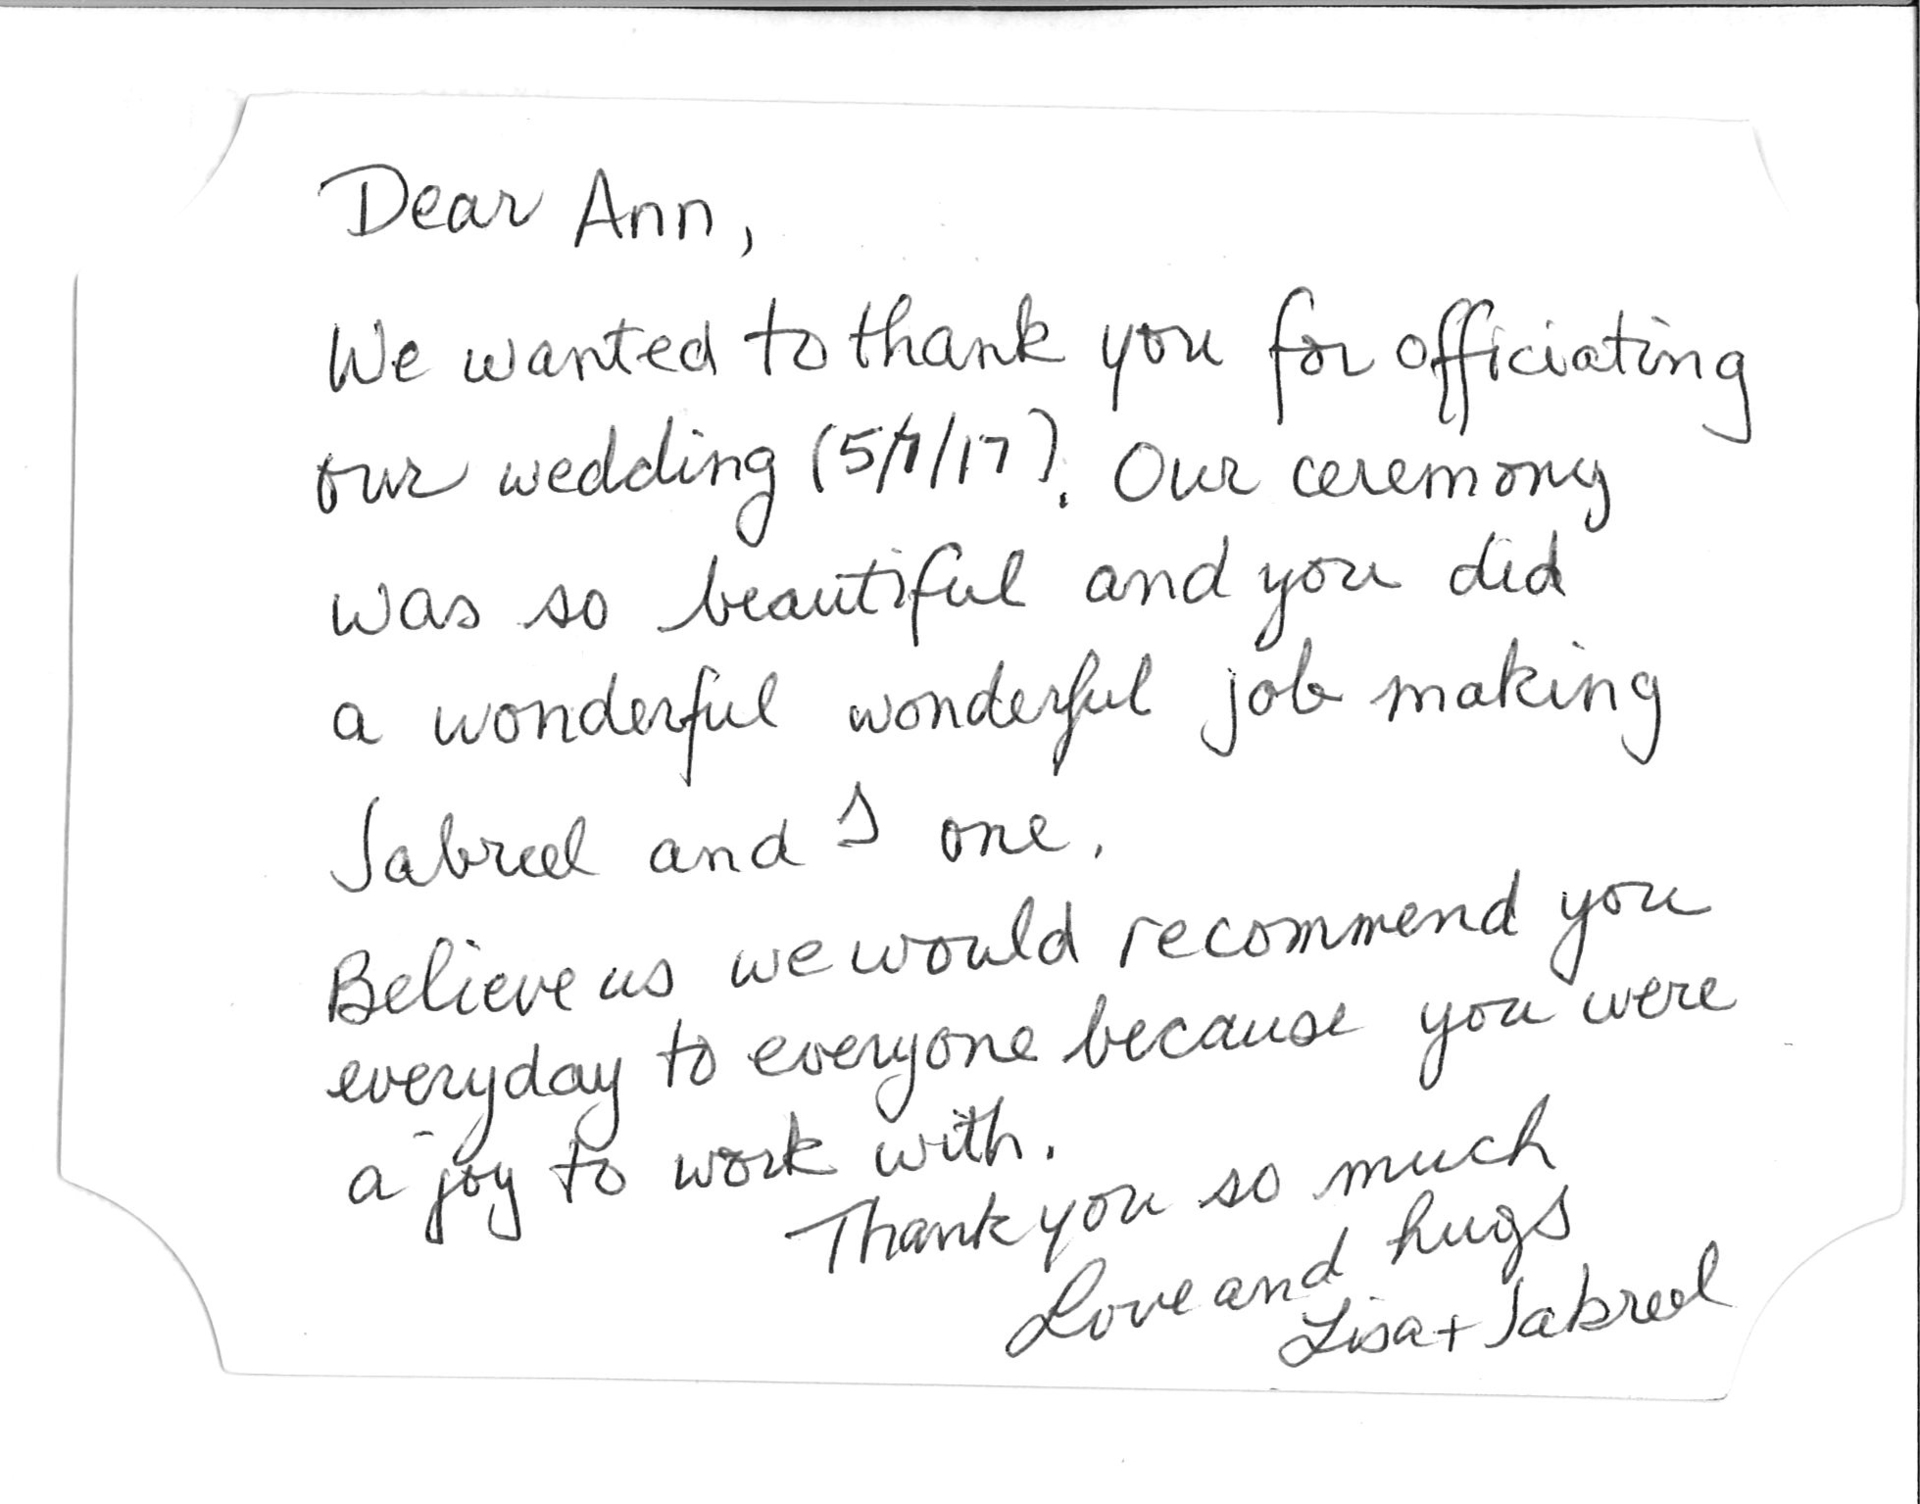 Dear Ann,
We wanted to thank you for officiating
our wedding (5/7/17). Our ceremony
was so beautiful and you did
a wonderful wonderful job making
Jabreel and I one.
Believe us we would recommend you
everyday to everyone because you were
a joy to work with.
Thank you so much
Love and hugs
Lisa + Jabreel